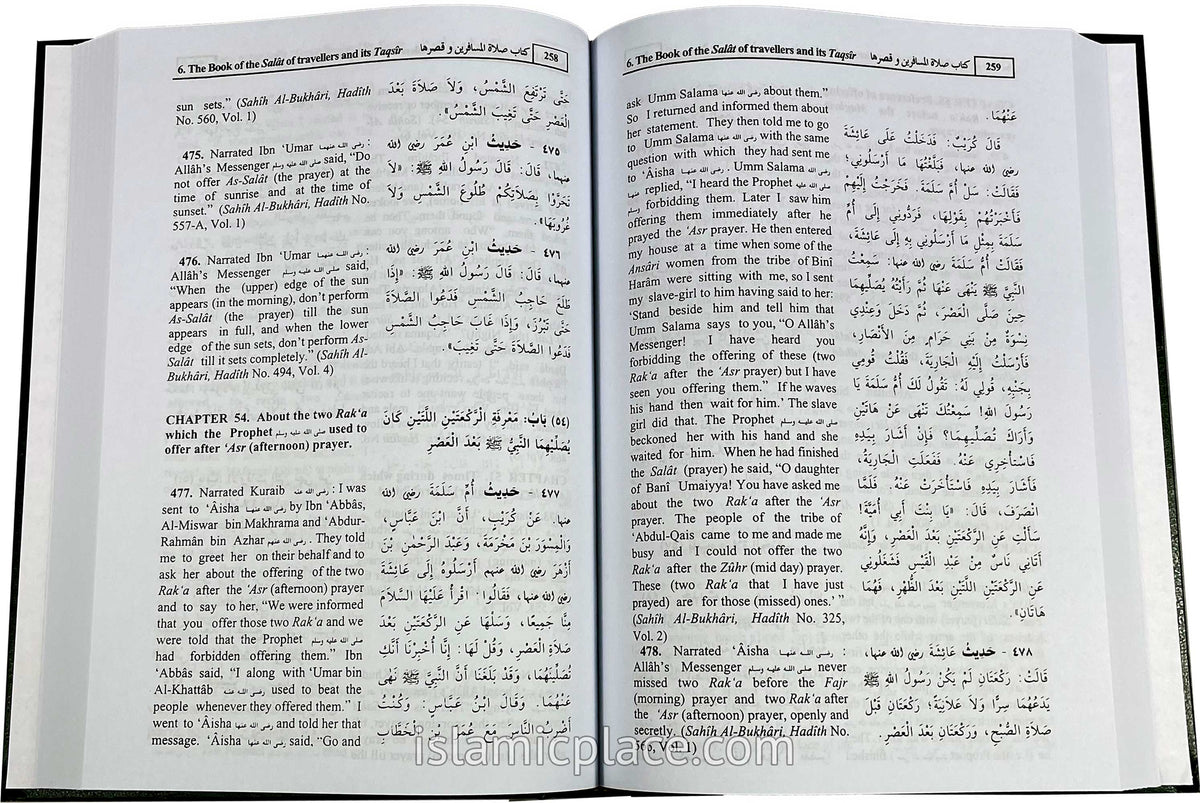 6. The Book of the Salât of travellers and its Taqsîr كتاب صلاة المسافرين و قصرها 258
sun sets." (Sahîh Al-Bukhâri, Hadîth
No. 560, Vol. 1)
475. Narrated Ibn 'Umar رضى الله عنهما :
Allâh's Messenger صلى الله عليه وسلم said, "Do
not offer As-Salât (the prayer) at the
time of sunrise and at the time of
sunset." (Sahîh Al-Bukhâri, Hadîth No.
557-A, Vol. 1)
476. Narrated Ibn 'Umar رضى الله عنهما :
Allâh's Messenger صلى الله عليه وسلم said,
"When the (upper) edge of the sun
appears (in the morning), don't perform
As-Salât (the prayer) till the sun
appears in full, and when the lower
edge of the sun sets, don't perform As-
Salât till it sets completely." (Sahîh Al-
Bukhâri, Hadîth No. 494, Vol. 4)
CHAPTER 54. About the two Rak'a
which the Prophet صلى الله عليه وسلم used to
offer after 'Asr (afternoon) prayer.
477. Narrated Kuraib رضى الله عنه : I was
sent to 'Âisha رضى الله عنها by Ibn 'Abbâs,
Al-Miswar bin Makhrama and 'Abdur-
Rahmân bin Azhar رضى الله عنهم . They told
me to greet her on their behalf and to
ask her about the offering of the two
Rak'a after the 'Asr (afternoon) prayer
and to say to her, "We were informed
that you offer those two Rak'a and we
were told that the Prophet صلى الله عليه وسلم
had forbidden offering them." Ibn
'Abbâs said, "I along with 'Umar bin
Al-Khattâb رضى الله عنه used to beat the
people whenever they offered them." I
went to 'Âisha رضى الله عنها and told her that
message. 'Âisha رضى الله عنها said, "Go and
حَتَّى تَرْتَفِعَ الشَّمْسُ، وَلاَ صَلاَةَ بَعْدَ
الْعَصْرِ حَتَّى تَغِيبَ الشَّمْسُ».
٤٧٥ - حَدِيثُ ابْنِ عُمَرَ رضى الله
عنهما، قَالَ: قَالَ رَسُولُ اللهِ ﷺ: «لاَ
تَحَرَّوْا بِصَلاَتِكُمْ طُلُوعَ الشَّمْسِ وَلاَ
غُرُوبَهَا».
٤٧٦ - حَدِيثُ ابْنِ عُمَرَ رضى الله
عنهما، قَالَ: قَالَ رَسُولُ اللهِ ﷺ: «إِذَا
طَلَعَ حَاجِبُ الشَّمْسِ فَدَعُوا الصَّلاَةَ
حَتَّى تَبْرُزَ، وَإِذَا غَابَ حَاجِبُ الشَّمْسِ
فَدَعُوا الصَّلاَةَ حَتَّى تَغِيبَ».
(٥٤) بَابُ: مَعْرِفَةِ الرَّكْعَتَيْنِ اللَّتَيْنِ كَانَ
يُصَلِّيهِمَا النَّبِيُّ ﷺ بَعْدَ الْعَصْرِ
٤٧٧ - حَدِيثُ أُمِّ سَلَمَةَ رضى الله
عنها. عَنْ كُرَيْبٍ، أَنَّ ابْنَ عَبَّاسٍ،
وَالْمِسْوَرَ بْنَ مَخْرَمَةَ، وَعَبْدَ الرَّحْمٰنِ بْنَ
أَزْهَرَ رضى الله عنهم أَرْسَلُوهُ إِلَى عَائِشَةَ
رضى الله عنها، فَقَالُوا: اقْرَأْ عَلَيْهَا السَّلاَمَ
مِنَّا جَمِيعًا، وَسَلْهَا عَنِ الرَّكْعَتَيْنِ بَعْدَ
صَلاَةِ الْعَصْرِ، وَقُلْ لَهَا: إِنَّا أُخْبِرْنَا أَنَّكِ
تُصَلِّينَهُمَا، وَقَدْ بَلَغَنَا أَنَّ النَّبِيَّ ﷺ نَهَى
عَنْهُمَا. وَقَالَ ابْنُ عَبَّاسٍ: وَكُنْتُ
أَضْرِبُ النَّاسَ مَعَ عُمَرَ بْنِ الْخَطَّابِ
6. The Book of the Salât of travellers and its Taqsîr كتاب صلاة المسافرين و قصرها 259
ask Umm Salama رضى الله عنها about them."
So I returned and informed them about
her statement. They then told me to go
to Umm Salama رضى الله عنها with the same
question with which they had sent me
to 'Âisha رضى الله عنها . Umm Salama رضى الله
عنها replied, "I heard the Prophet صلى الله عليه
وسلم forbidding them. Later I saw him
offering them immediately after he
prayed the 'Asr prayer. He then entered
my house at a time when some of the
Ansâri women from the tribe of Binî
Harâm were sitting with me, so I sent
my slave-girl to him having said to her:
'Stand beside him and tell him that
Umm Salama says to you, "O Allâh's
Messenger! I have heard you
forbidding the offering of these (two
Rak'a after the 'Asr prayer) but I have
seen you offering them." If he waves
his hand then wait for him.' The slave
girl did that. The Prophet صلى الله عليه وسلم
beckoned her with his hand and she
waited for him. When he had finished
the Salât (prayer) he said, "O daughter
of Banî Umaiyya! You have asked me
about the two Rak'a after the 'Asr
prayer. The people of the tribe of
'Abdul-Qais came to me and made me
busy and I could not offer the two
Rak'a after the Zûhr (mid day) prayer.
These (two Rak'a that I have just
prayed) are for those (missed) ones.' "
(Sahîh Al-Bukhâri, Hadîth No. 325,
Vol. 2)
478. Narrated 'Âisha رضى الله عنها :
Allâh's Messenger صلى الله عليه وسلم never
missed two Rak'a before the Fajr
(morning) prayer and two Rak'a after
the 'Asr (afternoon) prayer, openly and
secretly. (Sahîh Al-Bukhâri, Hadîth No.
566, Vol. 1)
عَنْهُمَا.
قَالَ كُرَيْبٌ: فَدَخَلْتُ عَلَى عَائِشَةَ
رضى الله عنها، فَبَلَّغْتُهَا مَا أَرْسَلُونِي؛
فَقَالَتْ: سَلْ أُمَّ سَلَمَةَ. فَخَرَجْتُ إِلَيْهِمْ
فَأَخْبَرْتُهُمْ بِقَوْلِهَا، فَرَدُّونِي إِلَى أُمِّ
سَلَمَةَ بِمِثْلِ مَا أَرْسَلُونِي بِهِ إِلَى عَائِشَةَ،
فَقَالَتْ أُمُّ سَلَمَةَ رضى الله عنها: سَمِعْتُ
النَّبِيَّ ﷺ يَنْهَى عَنْهَا ثُمَّ رَأَيْتُهُ يُصَلِّيهِمَا
حِينَ صَلَّى الْعَصْرَ، ثُمَّ دَخَلَ وَعِنْدِي
نِسْوَةٌ مِنْ بَنِي حَرَامٍ مِنَ الأَنْصَارِ،
فَأَرْسَلْتُ إِلَيْهِ الْجَارِيَةَ، فَقُلْتُ قُومِي
بِجَنْبِهِ، قُولِي لَهُ: تَقُولُ لَكَ أُمُّ سَلَمَةَ يَا
رَسُولَ اللهِ! سَمِعْتُكَ تَنْهَى عَنْ هَاتَيْنِ
وَأَرَاكَ تُصَلِّيهِمَا؟ فَإِنْ أَشَارَ بِيَدِهِ
فَاسْتَأْخِرِي عَنْهُ. فَفَعَلَتِ الْجَارِيَةُ،
فَأَشَارَ بِيَدِهِ فَاسْتَأْخَرَتْ عَنْهُ. فَلَمَّا
انْصَرَفَ، قَالَ: «يَا بِنْتَ أَبِي أُمَيَّةَ!
سَأَلْتِ عَنِ الرَّكْعَتَيْنِ بَعْدَ الْعَصْرِ، وَإِنَّهُ
أَتَانِي نَاسٌ مِنْ عَبْدِ الْقَيْسِ فَشَغَلُونِي
عَنِ الرَّكْعَتَيْنِ اللَّتَيْنِ بَعْدَ الظُّهْرِ، فَهُمَا
هَاتَانِ».
٤٧٨ - حَدِيثُ عَائِشَةَ رضى الله عنها،
قَالَتْ: رَكْعَتَانِ لَمْ يَكُنْ رَسُولُ اللهِ ﷺ
يَدَعُهُمَا سِرًّا وَلاَ عَلاَنِيَةً؛ رَكْعَتَانِ قَبْلَ
صَلاَةِ الصُّبْحِ، وَرَكْعَتَانِ بَعْدَ الْعَصْرِ.
islamicplace.com